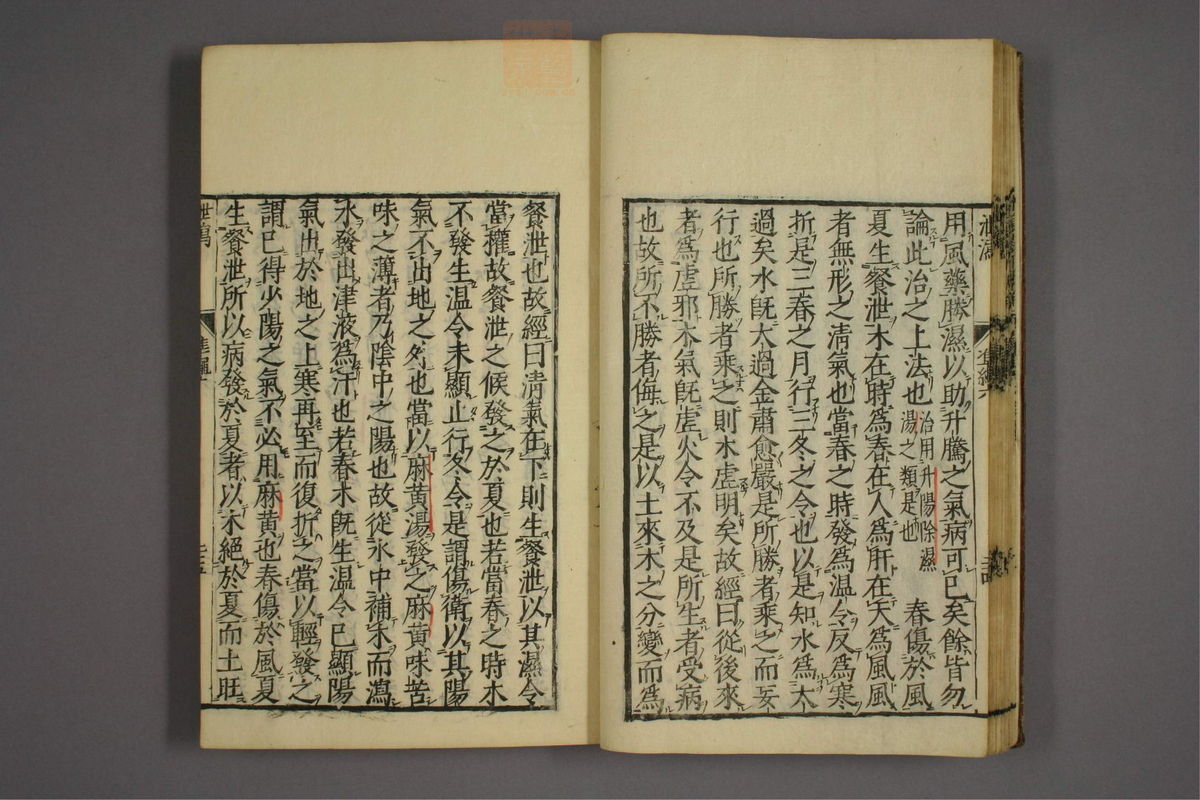 用風藥勝濕以助升騰之氣病可已矣餘皆勿
論此治之上法也治用升陽除濕湯之類是也 春傷於風
夏生飧泄木在時爲春在人爲肝在天爲風風
者無形之清氣也當春之時發爲温令反爲寒
折是三春之月行三冬之令也以是知水爲太
過矣水既太過金肅愈嚴是所勝者乘之而妄
行也所勝者乘之則木虚明矣故經曰從後來
者爲虚邪木氣既虚火令不及是所生者受病
也故所不勝者侮之是以土來木之分變而爲
飧泄也故經曰清氣在下則生飧泄以其濕令
當權故飧泄之候發之於夏也若當春之時木
不發生温令未顯止行冬令是謂傷衛以其陽
氣不出地之外也當以麻黄湯發之麻黄味苦
味之薄者乃陰中之陽也故從水中補木而瀉
水發出津液爲汗也若春木既生温令已顯陽
氣出於地之上寒再至而復折之當以輕發之
謂已得少陽之氣不必用麻黄也春傷於風夏
生飧泄所以病發於夏者以木絕於夏而土旺